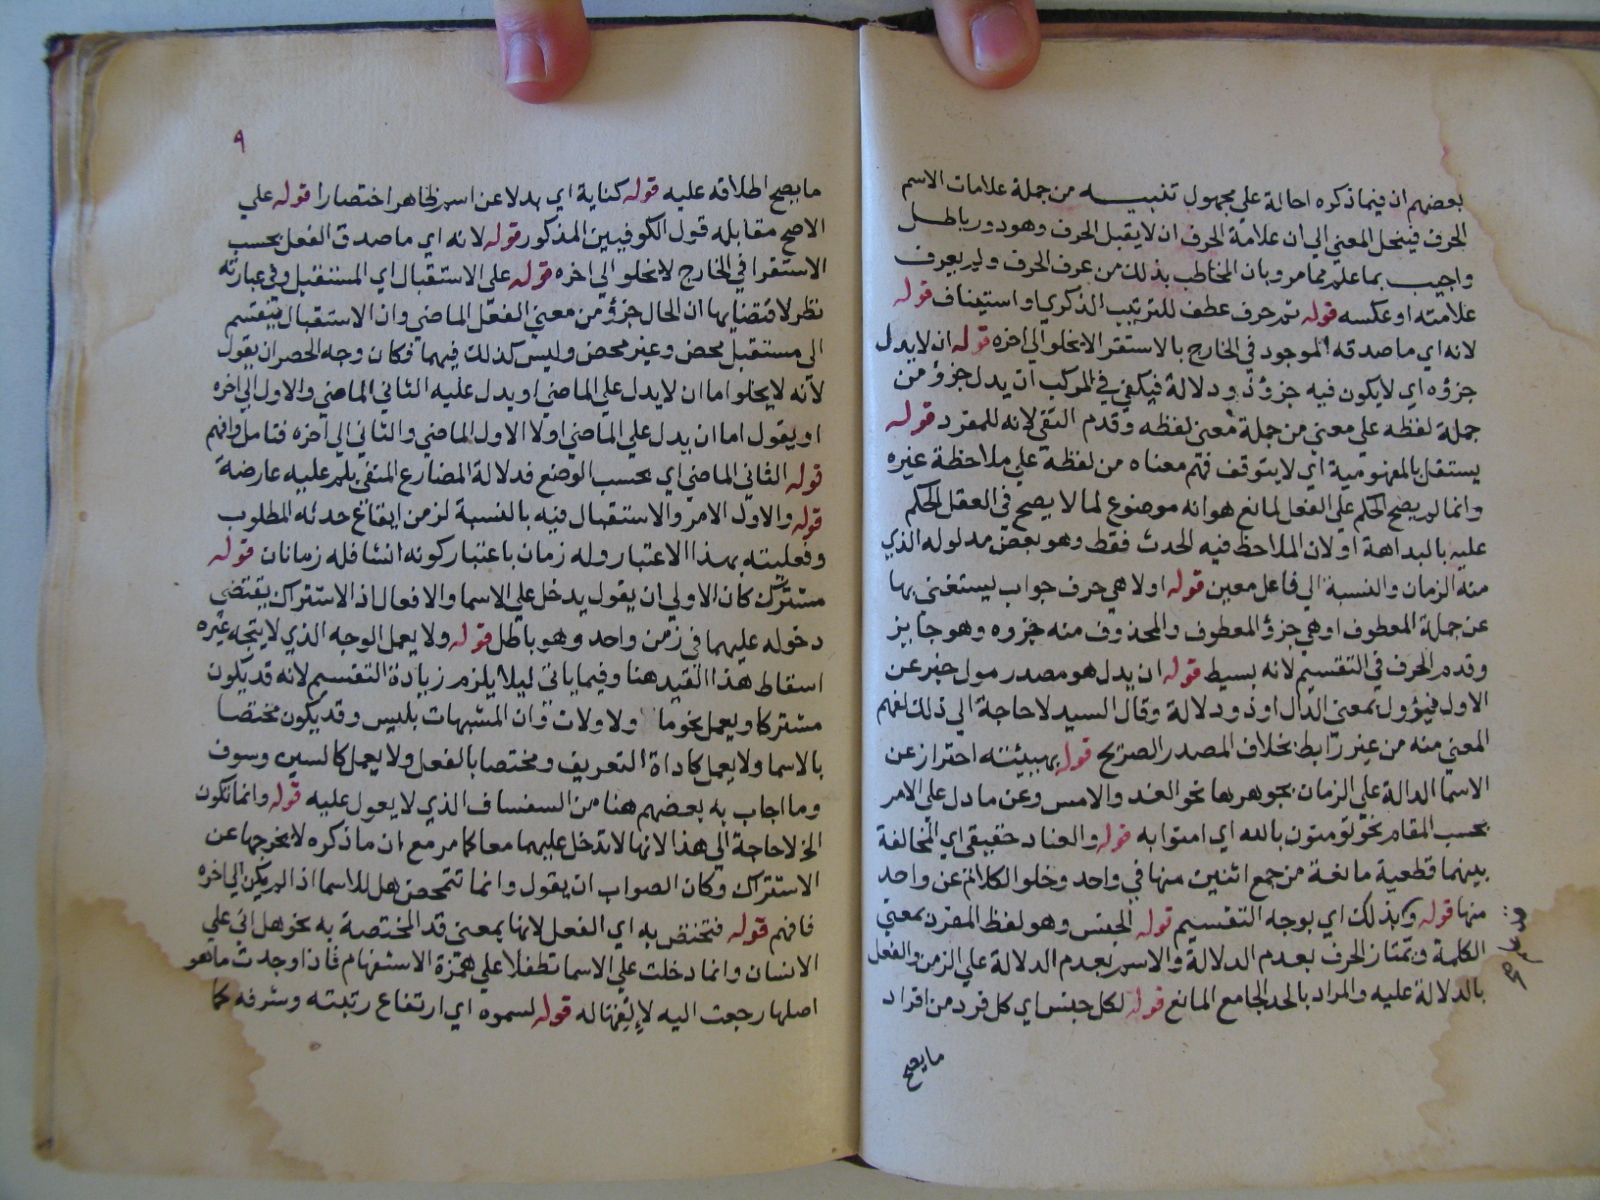 بعضهم ان فيما ذكره احالة على مجهول تنبيه من جملة علامات الاسم
الحرف فينحل المعني الي ان علامة الحرف ان لا يقبل الحرف وهو دور باطل
واجيب بما علم مما مر وبان المخاطب بذلك من عرف الحرف ولم يعرف
علامته او عكسه قوله ثم حرف عطف للترتيب الذكري واستيناف قوله
لانه اي ما صدقه الموجود في الخارج بالاستقرا لا يخلوا الي اخره قوله ان لا يدل
جزؤه اي لا يكون فيه جزؤ ذو دلالة فيكفي في المركب ان يدل جزؤ من
جملة لفظه علي معني من جملة معني لفظه وقدم النفي لانه للمفرد قوله
يستقل بالمفهومية اي لا يتوقف فهم معناه من لفظة علي ملاحظة غيره
وانما لم يصح الحكم علي الفعل لمانع هو انه موضوع لما لا يصح في العقل الحكم
عليه بالبداهة او لان الملاحظ فيه الحدث فقط وهو بعض مدلوله الذي
منه الزمان والنسبة الي فاعل معين قوله اولا هي حرف جواب يستغني بها
عن جملة المعطوف او هي جزؤ المعطوف والمحذوف منه جزوه وهو جايز
وقدم الحرف في التقسيم لانه بسيط قوله ان يدل هو مصدر مول خبر عن
الاول فيؤول بمعني الدال او ذو دلالة وقال السيد لا حاجة الي ذلك لفهم
المعني منه من غير رابط بخلاف المصدر الصريح قوله بهيئته احتراز عن
الاسما الدالة علي الزمان بجوهرها نحو الغد والامس وعن ما دل علي الامر
بحسب المقام نحو تومنون بالله اي امنوا به قوله والعناد حقيقي اي المخالفة
بينهما قطعية مانعة من جمع اثنين منها في واحد وخلو الكلام عن واحد
منها قوله وبذلك اي بوجه التقسيم قوله الجنس وهو لفظ المفرد بمعني
الكلمة وتمتاز الحرف بعدم الدلالة والاسم بعدم الدلالة علي الزمن والفعل
بالدلالة عليه والمراد بالحد الجامع المانع قوله لكل جنس اي كل فرد من افراد
ما يصح
٩
ما يصح اطلاقه عليه قوله كناية اي بدلا عن اسم ظاهر اختصارا قوله علي
الاصح مقابله قول الكوفيين المذكور قوله لانه اي ما صدق الفعل بحسب
الاستقرا في الخارج لا يخلو الي اخره قوله علي الاستقبال اي المستقبل وفي عبارته
نظر لاقتضايها ان الحال جزؤ من معني الفعل الماضي وان الاستقبال ينقسم
الي مستقبل محض وغير محض وليس كذلك فيهما فكان وجه الحصر ان يقول
لانه لا يخلوا اما ان لا يدل علي الماضي او يدل عليه الثاني الماضي والاول الي اخره
او يقول اما ان يدل علي الماضي اولا الاول الماضي والثاني الي اخره فتامل وافهم
قوله الثاني الماضي اي بحسب الوضع فدلالة المضارع المنفي بلم عليه عارضة
قوله والاول الامر والاستقبال فيه بالنسبة لزمن ايقاع حدثه المطلوب
وفعليته بهذا الاعتبار وله زمان باعتبار كونه انشا فله زمانان قوله
مشترك كان الاولي ان يقول يدخل علي الاسما والافعال اذ الاشتراك يقتضي
دخوله عليهما في زمن واحد وهو باطل قوله ولا يعمل الوجه الذي لا يتجه غيره
اسقاط هذا القيد هنا وفيما ياتي ليلا يلزم زيادة التقسيم لانه قد يكون
مشتركا ويعمل نحو ما ولا ولات وان المشبهات بليس وقد يكون مختصا
بالاسما ولا يعمل كاداة التعريف ومختصا بالفعل ولا يعمل كالسين وسوف
وما اجاب به بعضهم هنا من السفساف الذي لا يعول عليه قوله وانما تكون
الخ لا حاجة الي هذا لانها لا تدخل عليهما معا كما مر مع ان ما ذكره لا يخرجها عن
الاشتراك وكان الصواب ان يقول وانما تتمحض هل للاسما اذا لم يكن الي اخره
فافهم قوله فتختص به اي الفعل لانها بمعني قد المختصة به نحو هل اتي علي
الانسان وانما دخلت علي الاسما تطفلا علي همزة الاستفهام فاذا وجدت ما هو
اصلها رجعت اليه لإلفها له قوله لسموه اي ارتفاع رتبته وشرفه كما